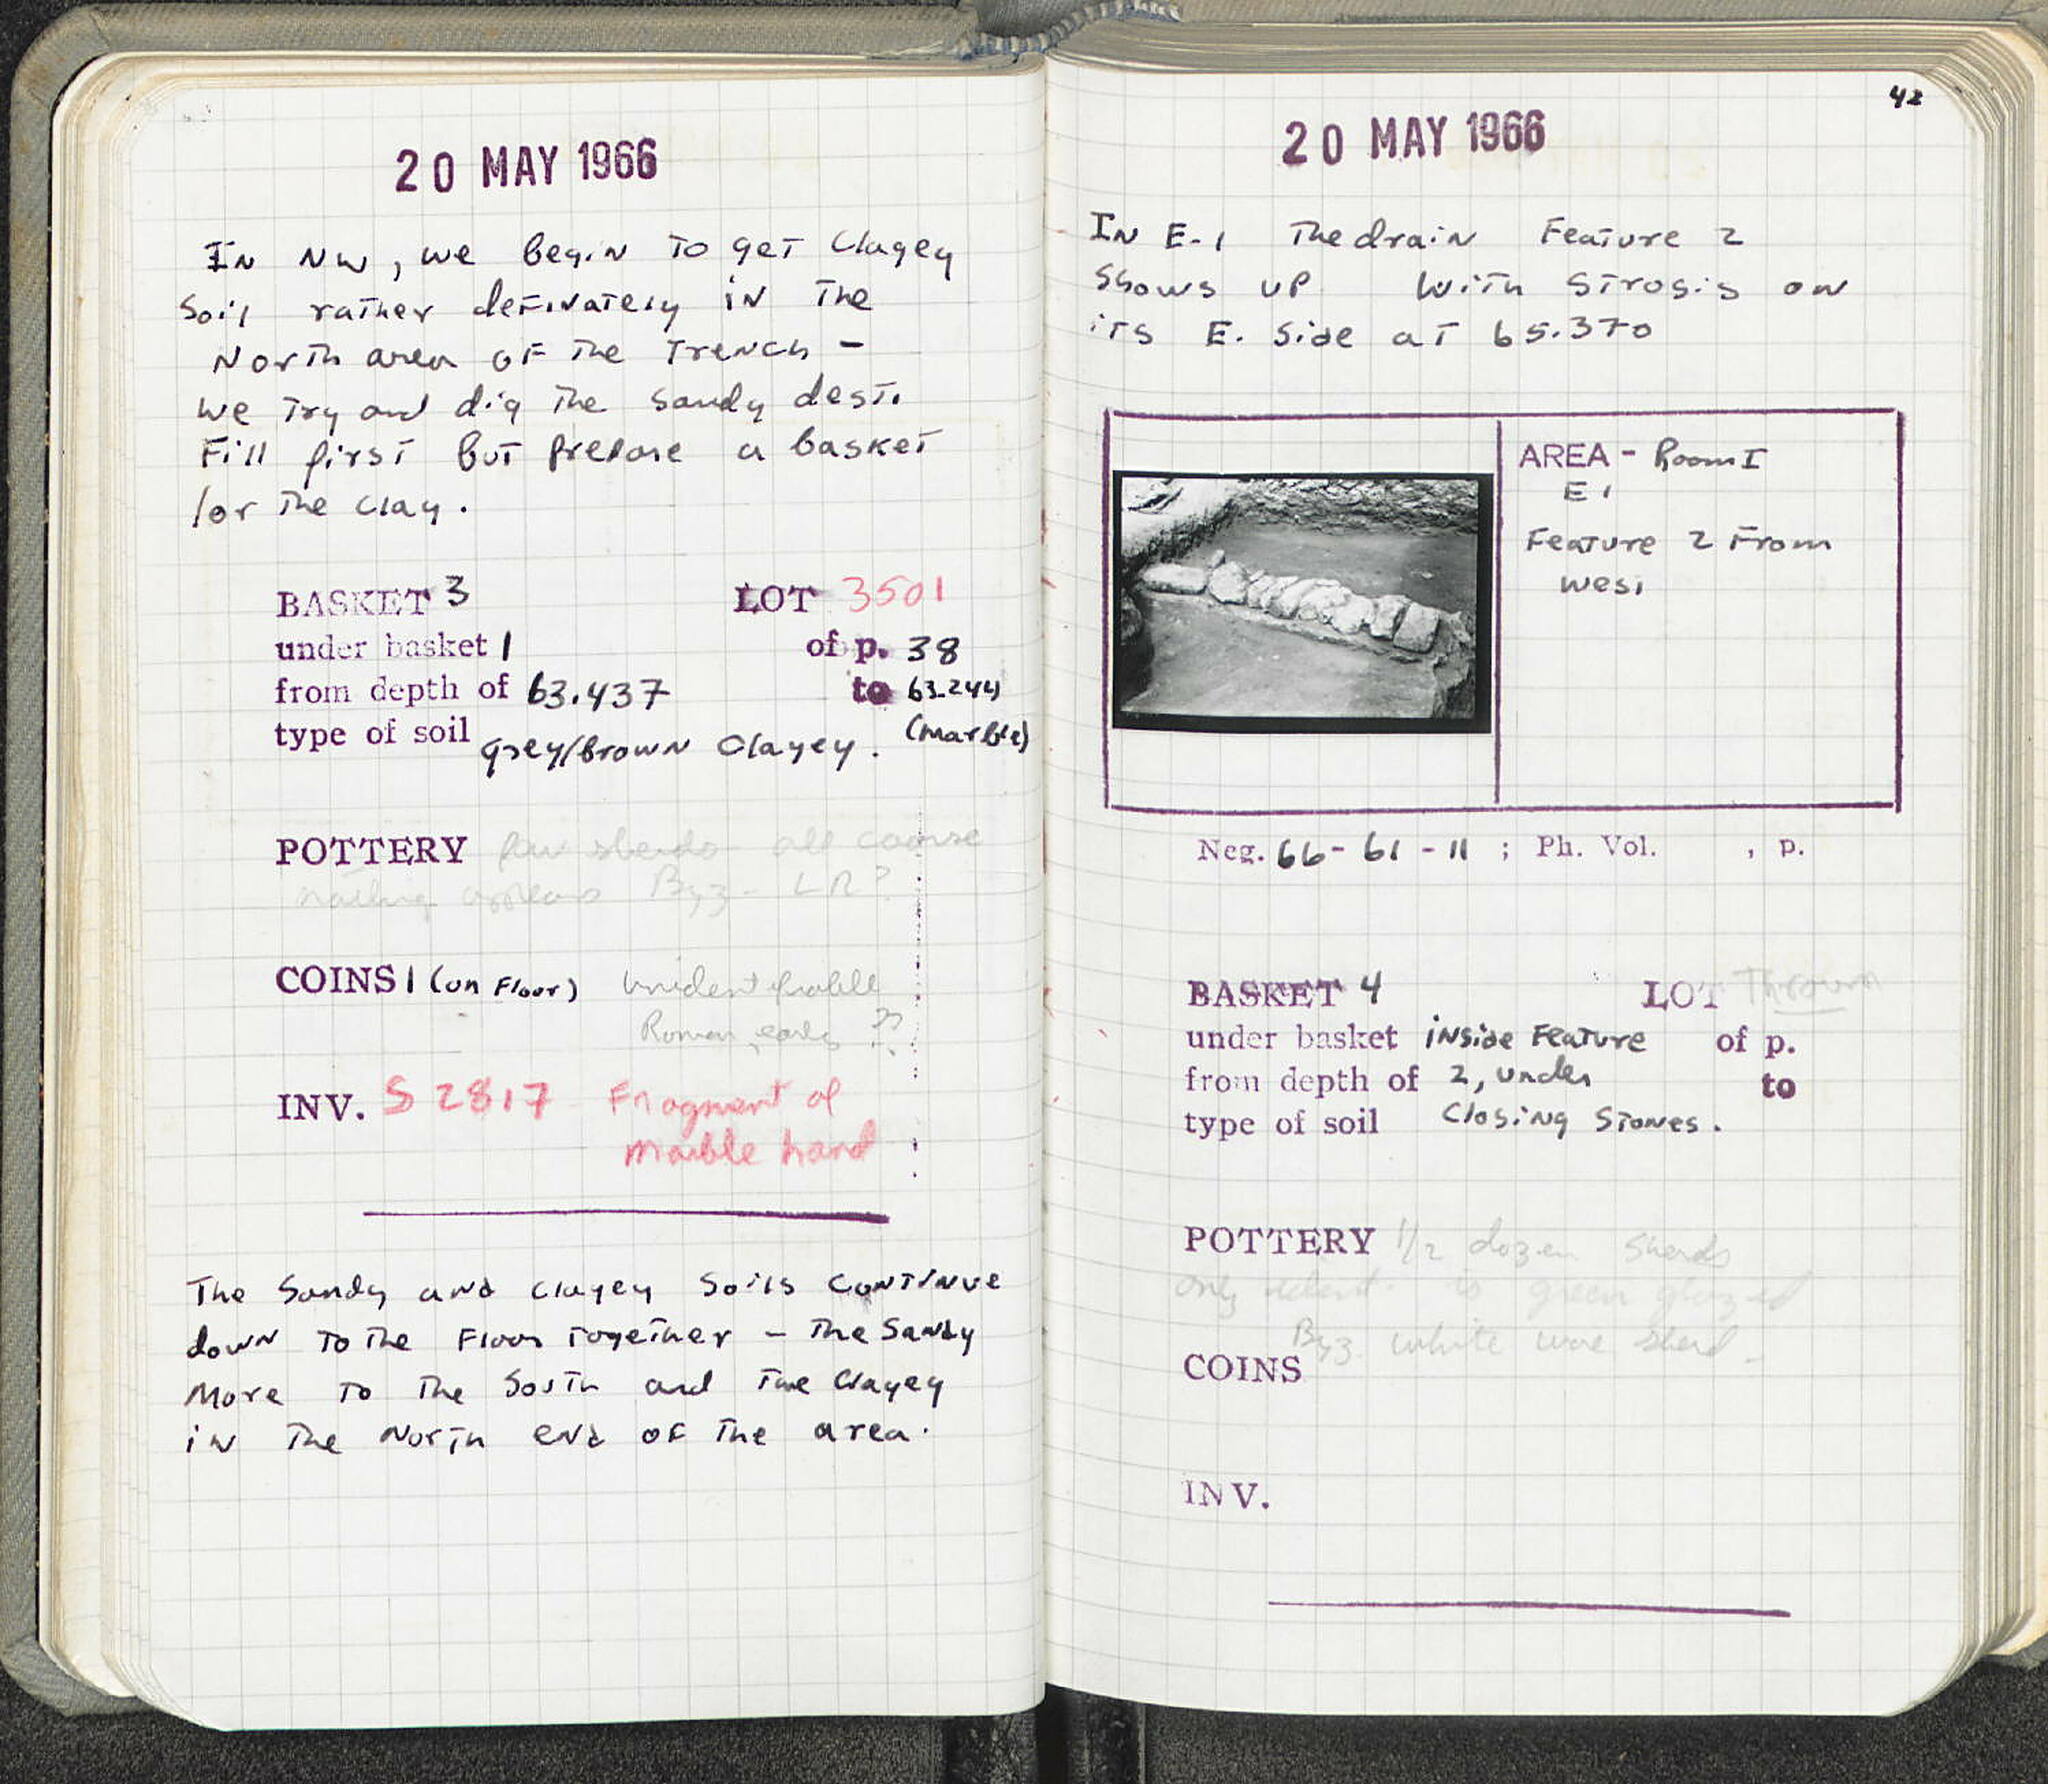 20 MAY 1966
In NW, we begin to get clayey
soil rather definately in the
North area of the trench -
we try and dig the sandy dest.
Fill first but prepare a basket
for the clay.
BASKET 3 LOT 3501
under basket 1 of p. 38
from depth of 63.437 to 63.244
(marble)
type of soil grey/brown clayey.
POTTERY few sherds all coarse
nothing appears Byz - LR?
COINS 1 (on Floor) unidentifiable
Roman, early ??
INV. S 2817 Fragment of
marble hand
The sandy and clayey soils continue
down to the Floor together - the sandy
more to the south and the clayey
in the North end of the area.
42
20 MAY 1966
In E-1 The drain Feature 2
shows up with strosis on
its E. side at 65.370
AREA - Room I
E 1
Feature 2 From
West
Neg. 66-61-11 ; Ph. Vol. , p.
BASKET 4 LOT Thrown
under basket inside Feature of p.
from depth of 2, under to
type of soil closing stones.
POTTERY 1/2 dozen sherds
only is green glazed
Byz. white ware sherd -
COINS
INV.